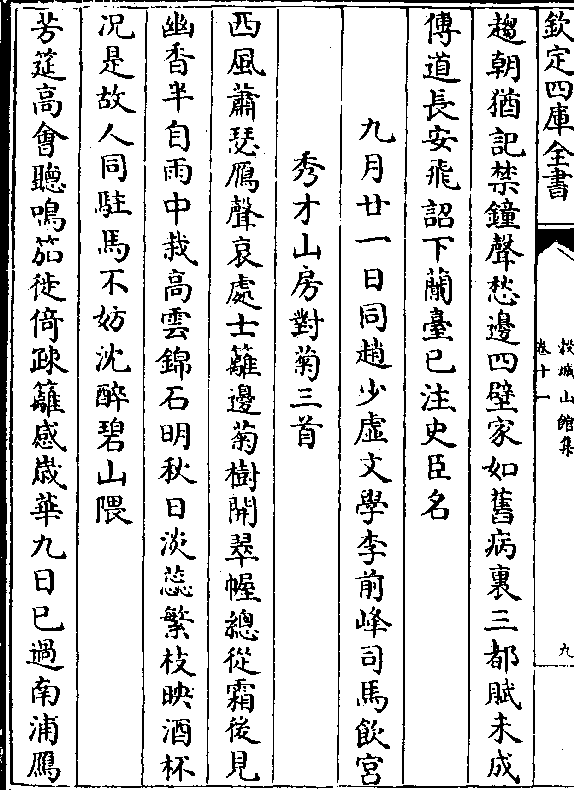 欽定四庫全書
穀城山館集
卷十一
九
趨朝猶記禁鐘聲愁邊四壁家如舊病裏三都賦未成
傳道長安飛詔下蘭臺已注史臣名
九月廿一日同趙少虛文學李前峰司馬飲宮
秀才山房對菊三首
西風蕭瑟鴈聲哀處士籬邊菊樹開翠幄總從霜後見
幽香半自雨中栽高雲錦石明秋日淡蕊繁枝映酒杯
况是故人同駐馬不妨沈醉碧山隈
芳筵高會聽鳴笳徙倚疎籬感歲華九日已過南浦鴈